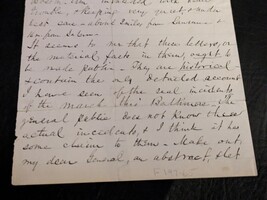 month, sleeping very quiet & under
best care – about 3 miles from Savannah &
ten from Salem.
It seems to me that these letters, or
the material facts in them, ought to
be made public. They are historical
& contain the only detailed account
I have seen of the real incidents
of the march thro' Baltimore. The
general public does not know these
actual incidents, & I think it has
some claim to them. Make out,
my dear General, an abstract, & let